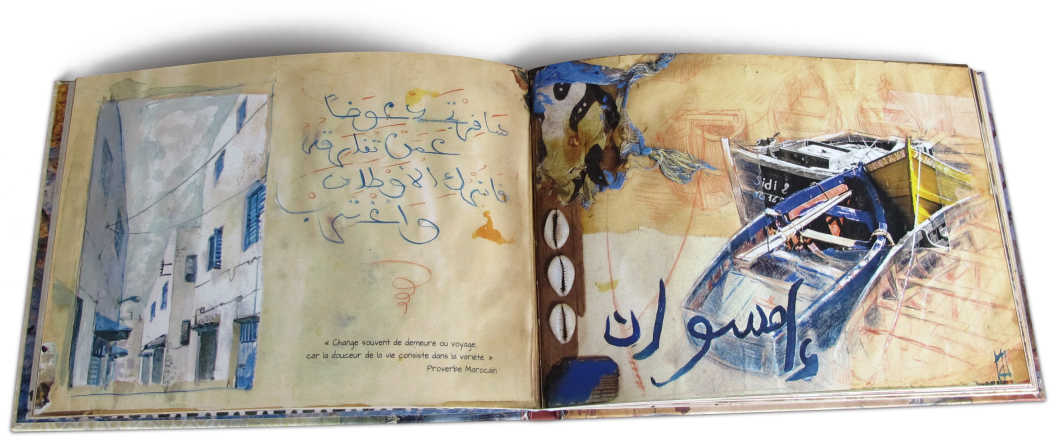 سافر تجد عوضاً
عَمَن تفارقه
فاترك الأوطان
واغترب
« Change souvent de demeure ou voyage,
car la douceur de la vie consiste dans la variété. »
Proverbe Marocain
Sidi